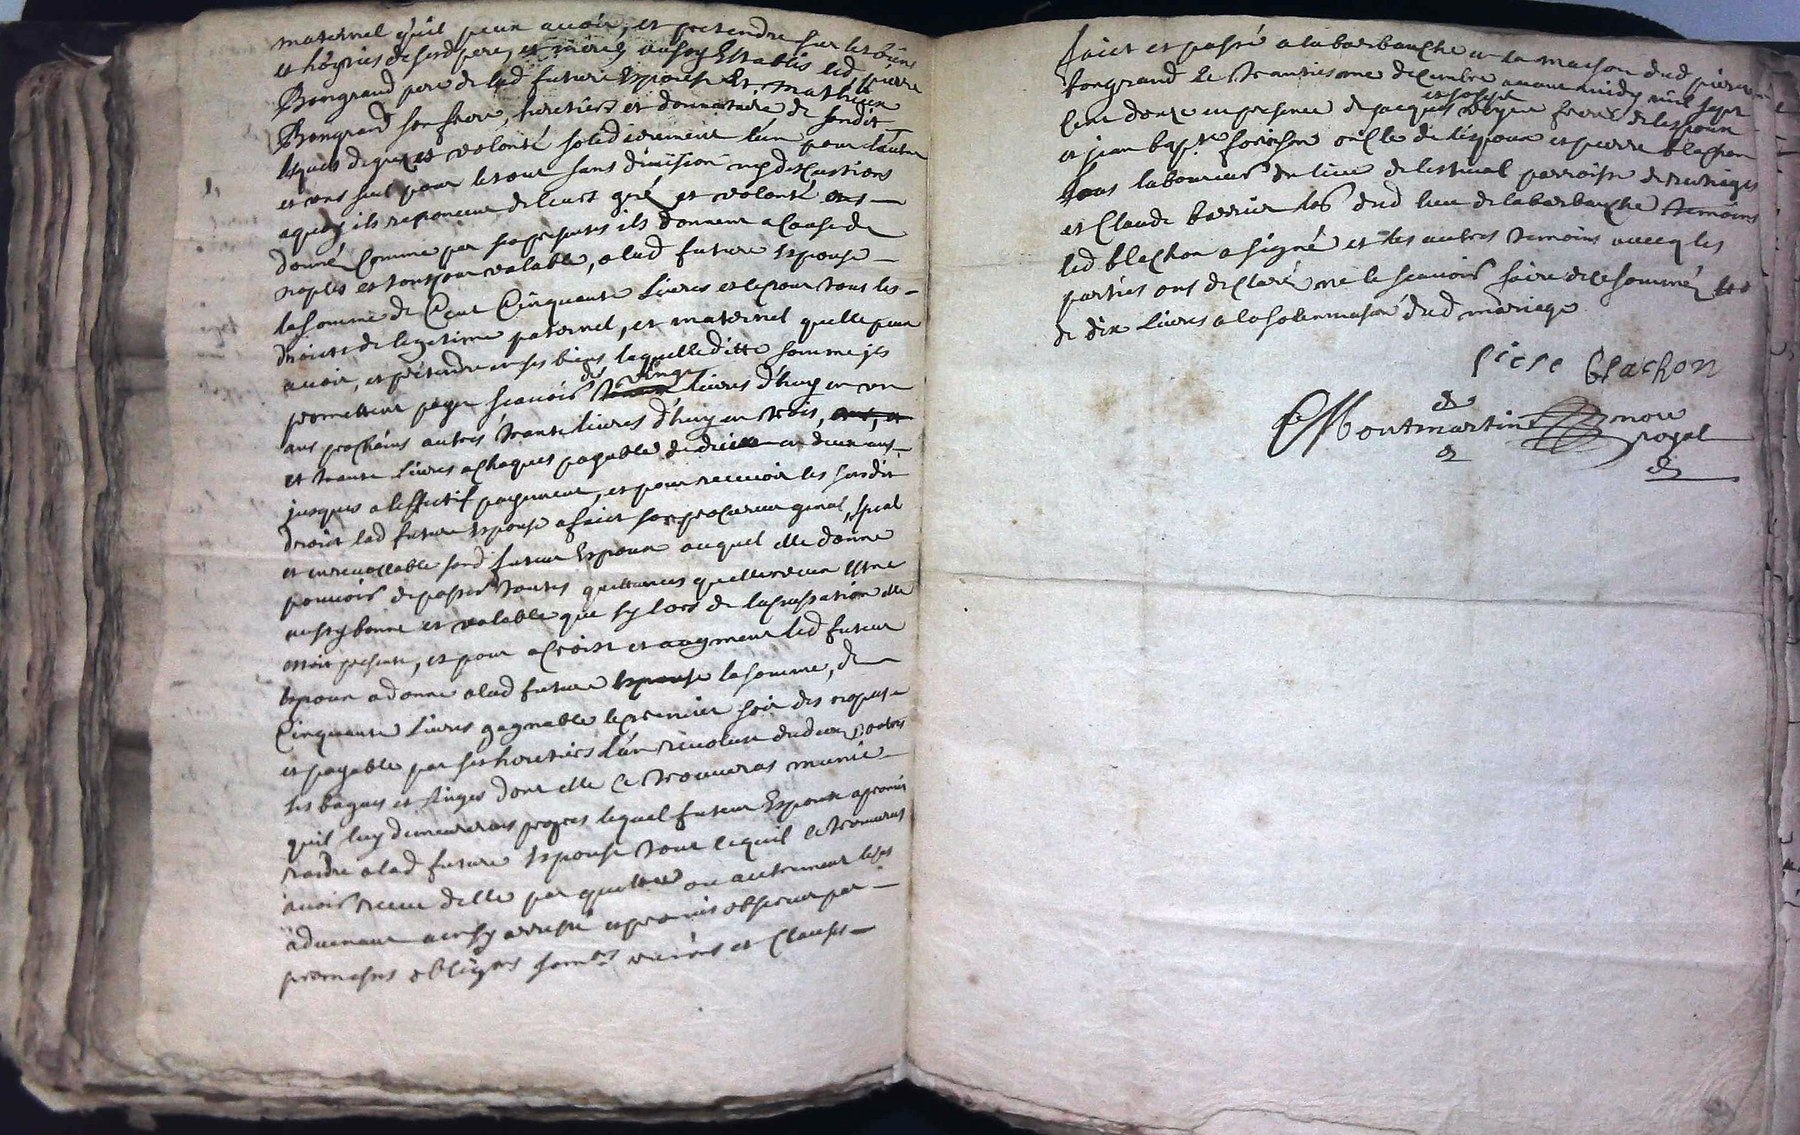 maternel quil peux avoir, et pretendre sur les biens
et hoyries de sesd pere, et mere, aussy Establis led pierre
Bongrand pere de lad future Espouse Et Mathieu
Bongrand son frere, heretier et donnataire de sondit
lesquels de gré et volonté soledairement l'un pour l'autre
et uns seul pour le tout sans division ny discustions
aquoy ils renoncent de leurs gré et volonté ont
donné comme par ses presentes ils donnent a cause de
nopces et tousjour valable, a lad future Espouse
la somme de Cent Cinquante Livres et ce pour tous les
droicts de legitime paternel, et maternel quelle peux
avoir, et pretendre en ses biens laquelleditte somme ils
promettent payer scavoir dix livres d'huy en un
ans prochains autres trante livres d'huy en trois,
et trante Livres a chaques payable de deux en deux ans
jusques a l'effectif payement, et pour recevoir les susdit
droict lad future Espouse a faict son procureur genal, spcal
et inrevocable sond futeur Espoux auquel elle donne
pouvoir de passer toutes quittances quelle veux Estre
aussy bonne et valable que sy lors de la passation elle
estoit presente, et pour acroist et augment led futeur
Espoux a donne a lad future Espouse la somme, de
Cinquante Livres gagnable le premier soir des nopces
et payable par ses heretiers l'an revoleu dud deux, outres
les bagues et linges dont elle ce trouveras munie
quil luy demeureront propres lequel futeur Espoux a promis
randre a lad future Espouse tout cequil ce trouveras
avoir receu delle par quittance ou autrement le cas
advenant ainsy arresté et promis observer par
promesses obligons renons et Clauses
faict et passé a la barbauche en la maison dud pierre
bongrand le trantiesme decembre avant midy mil sept
et joseph
cent douze en presence de jacques freres de lespoux
et jean bapte oncle de l'epoux et pierre blachon
tous laboureurs du lieu de lestival parroisse de
et Claude barrier lab dud lieu de labarbauche temoins
led blachon a signé et les autres temoins avecq les
parties ont declaré ne le scavoir faire de ce sommés
de dix Livres a la solemnisaon dud mariage
piere blachon
Montmartin nore
royal